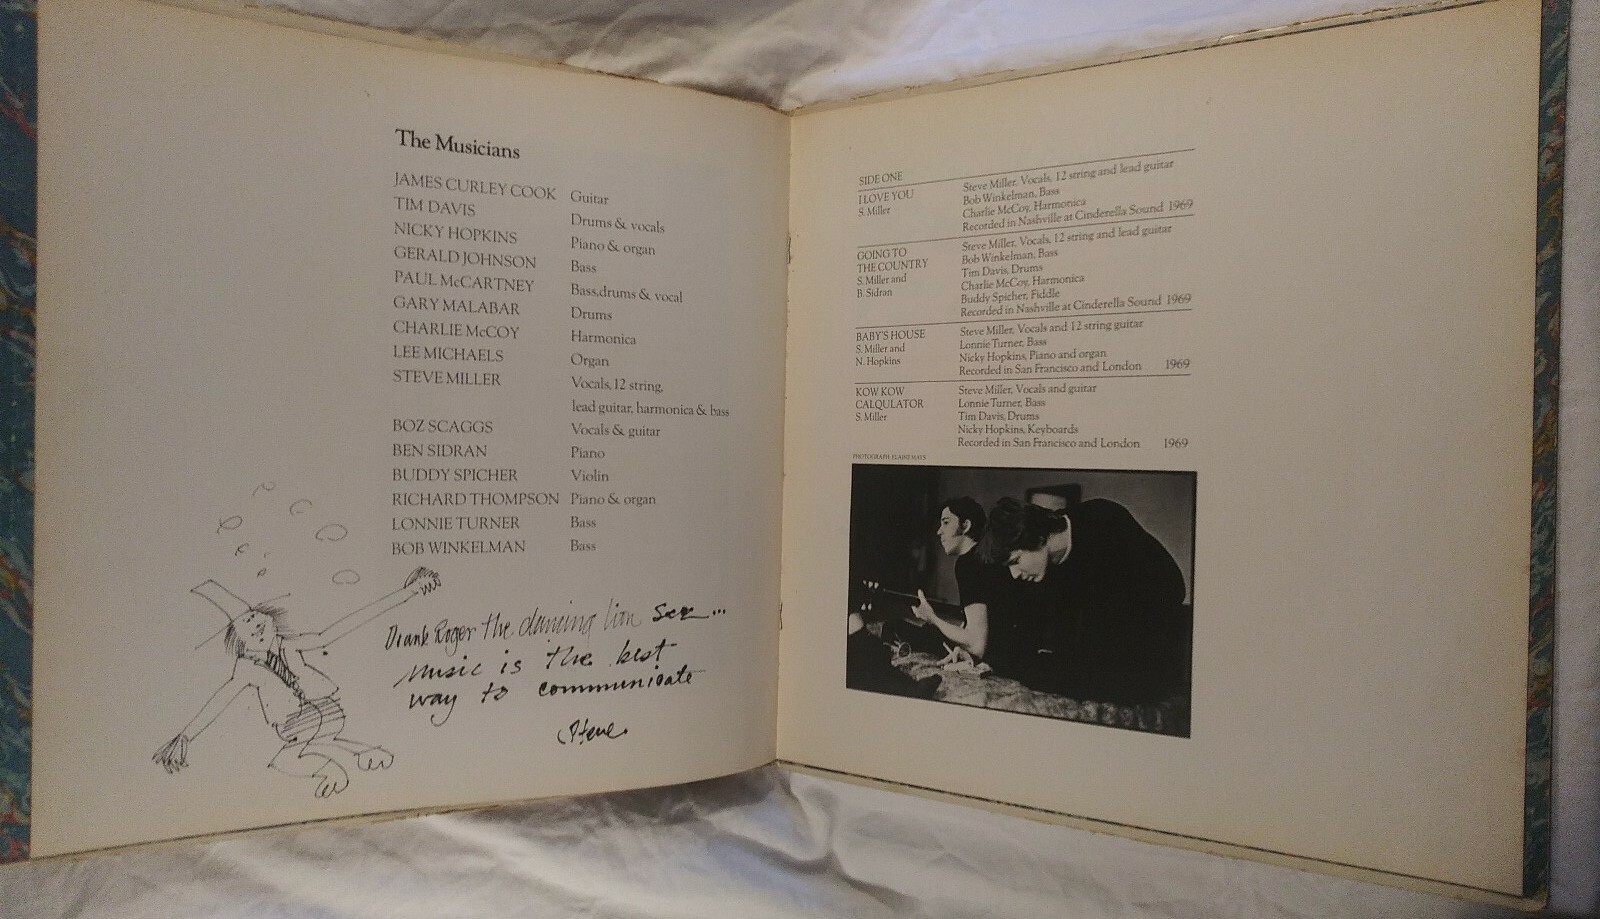 The Musicians
JAMES CURLEY COOK Guitar
TIM DAVIS Drums & vocals
NICKY HOPKINS Piano & organ
GERALD JOHNSON Bass
PAUL McCARTNEY Bass, drums & vocal
GARY MALABAR Drums
CHARLIE McCOY Harmonica
LEE MICHAELS Organ
STEVE MILLER Vocals, 12 string,
lead guitar, harmonica & bass
BOZ SCAGGS Vocals & guitar
BEN SIDRAN Piano
BUDDY SPICHER Violin
RICHARD THOMPSON Piano & organ
LONNIE TURNER Bass
BOB WINKELMAN Bass
Roger the dancing lion
music is the best
way to communicate
Steve
SIDE ONE
I LOVE YOU
S. Miller
Steve Miller, Vocals, 12 string and lead guitar
Bob Winkelman, Bass
Charlie McCoy, Harmonica
Recorded in Nashville at Cinderella Sound 1969
GOING TO
THE COUNTRY
S. Miller and
B. Sidran
Steve Miller, Vocals, 12 string and lead guitar
Bob Winkelman, Bass
Tim Davis, Drums
Charlie McCoy, Harmonica
Buddy Spicher, Fiddle
Recorded in Nashville at Cinderella Sound 1969
BABY'S HOUSE
S. Miller and
N. Hopkins
Steve Miller, Vocals and 12 string guitar
Lonnie Turner, Bass
Nicky Hopkins, Piano and organ
Recorded in San Francisco and London 1969
KOW KOW
CALQULATOR
S. Miller
Steve Miller, Vocals and guitar
Lonnie Turner, Bass
Tim Davis, Drums
Nicky Hopkins, Keyboards
Recorded in San Francisco and London 1969
PHOTOGRAPH: ELAINE MAYS